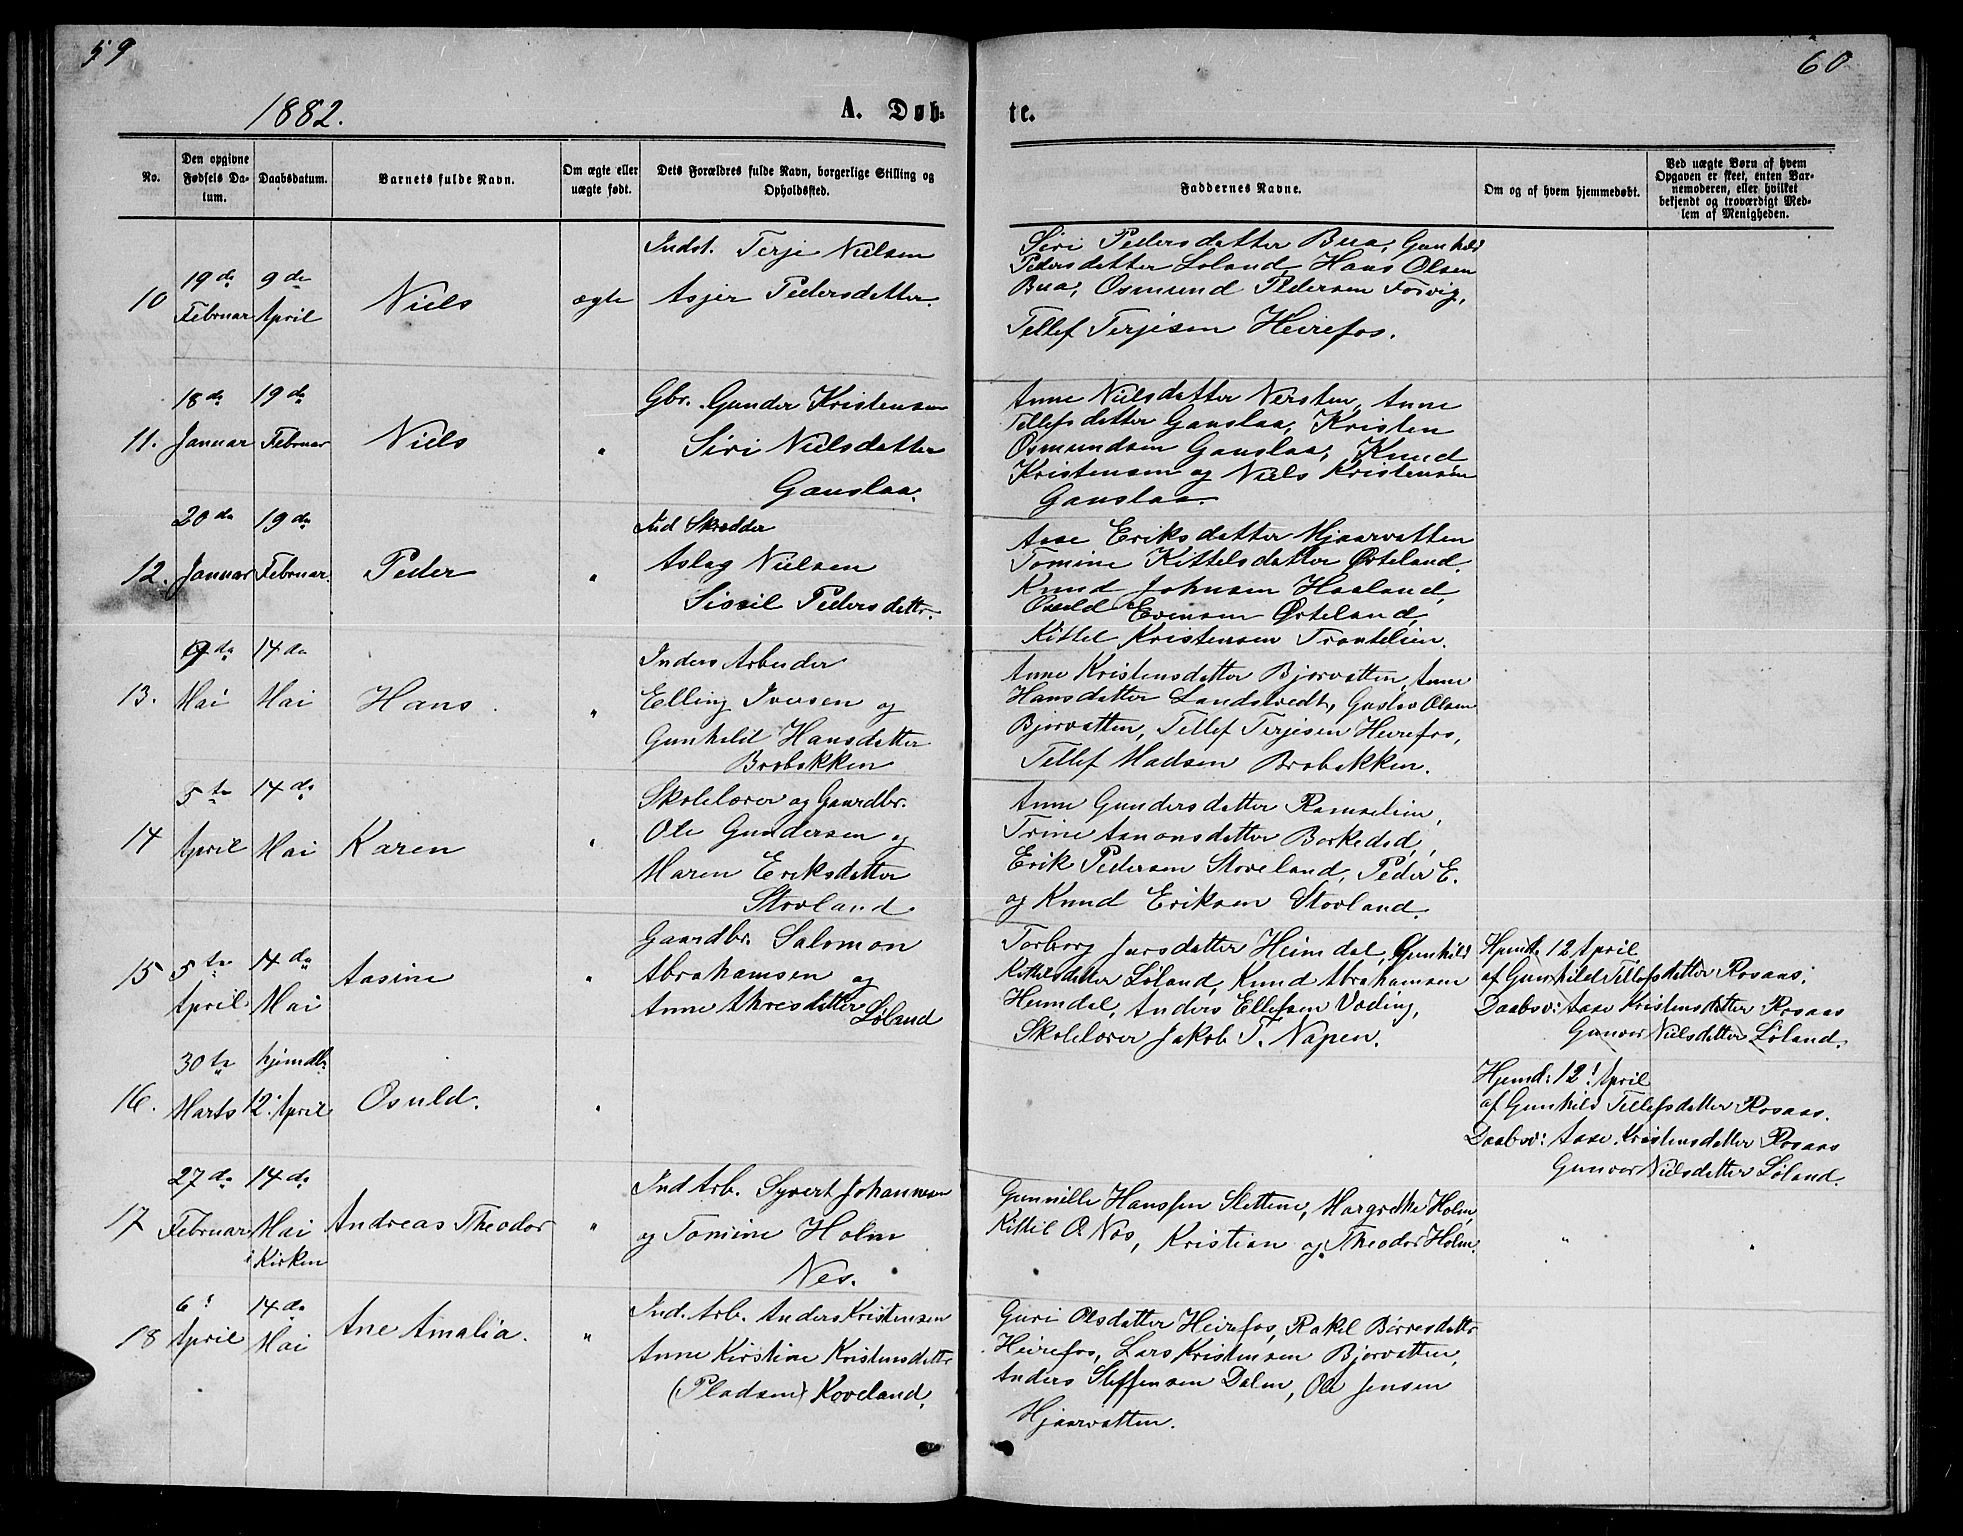 59
60
1882.
A. Døb-
te.
No.
Den opgivne Fødsels Da-
tum.
Daabsdatum.
Barnets fulde Navn.
Om ægte eller uægte født.
Dets Forældres fulde Navn, borgerlige Stilling og
Opholdssted.
Faddernes Navne.
Om og af hvem hjemmedøbt.
Ved uægte Børn af hvem
Opgaven er skeet, enten Bar-
nemoderen, eller hvilket
bekjendt og troværdigt Med-
lem af Menigheden.
10
19de Februar
9de April
Niels
ægte
Indst. Terje Nielsen
Asjer Pedersdatter.
Siri Pedersdatter Bua, Gunhild
Pedersdatter Loland, Hans Olsen
Bua, Osmund Pedersen Forvig,
Tellef Terjesen Heirefos.
11.
18de Januar
19de Februar
Niels
"
Gbr. Gunder Kristensen
Siri Nielsdatter
Gauslaa.
Anne Nielsdatter Nersten, Anne
Tellefsdatter Gauslaa, Kristen
Osmundsen Gauslaa, Knud
Kristensen og Niels Kristensen
Gauslaa.
12.
20de Januar
19de Februar.
Peder
"
Ind Skrædder
Aslag Nielsen
Sissil Pedersdattr.
Aase Eriksdatter Hjaarvatten
Tomine Kittelsdatter Østeland.
Knud Johnsen Haaland,
Osuld Evensen Østeland,
Kittel Kristensen Trontelien.
13.
9de Mai
14de Mai
Hans.
"
Inders Arbeider
Elling Iversen og
Gunhild Hansdatter
Brobakken
Anne Kristensdatter Bjorvatten, Anne
Hansdatter Landstvedt, Gustav Olsen
Bjorvatten, Tellef Terjesen Heirefos,
Tellef Madsen Brobakken.
14
5te April
14de Mai
Karen
"
Skolelærer og Gaardbr.
Ole Gundersen og
Maren Eriksdatter
Stovland.
Anne Gundersdatter Ramselien,
Trine Aanonsdatter Borkedal,
Erik Pedersen Stoveland, Peder E.
og Knud Eriksen Stovland.
15
5te April
14de Mai
Aasine
"
Gaardbr. Salomon
Abrahamsen og
Anne Akresdatter Løland
Torborg Jarsdatter Heimdal, Gunhild
Kittelsdatter Løland, Knud Abrahamsen
Heimdal, Anders Ellefsen Væding,
Skolelærer Jakob T. Napen.
Hjemd. 12 April
af Gunhild Tellefsdatter Rosaas.
Daabsv: Aase Kristensdatter Rosaas
Gunvor Nielsdatter Løland.
16.
30te Marts
hjemdbt. 12. April
Osuld.
"
Hjemd: 12! April
af Gunhild Tellefsdatter Rosaas.
Daabsv: Aase Kristensdatter Rosaas
Gunvor Nielsdatter Løland.
17
27de Februar
14de Mai i Kirken
Andreas Theodor
"
Ind Arb. Syvert Johannesen
og Tomine Holm
Nes.
Gunnille Hanssen Slettene, Margrethe Holm,
Kittil O. Nes, Kristian og Theodor Holm.
"
"
18
6! April
14de Mai
Ane Amalia.
"
Ind. Arb. Anders Kristensen
Anne Kirstine Kristensdattr
(Pladsen) Koveland,
Guri Olsdatter Heirefos, Rakel Børresdattr
Heirefos, Lars Kristensen Bjorvatten,
Anders Steffensen Dalen, Ole Jensen
Hjaarvatten.